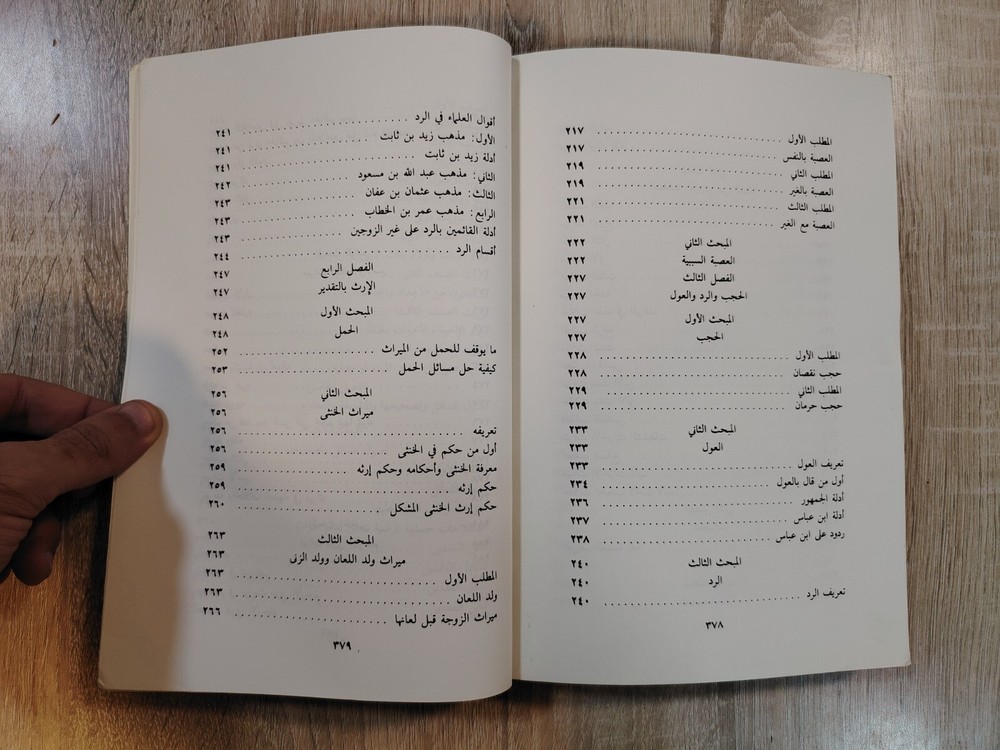 المطلب الأول ............ ٢١٧
العصبة بالنفس ............ ٢١٧
المطلب الثاني ............ ٢١٩
العصبة بالغير ............ ٢١٩
المطلب الثالث ............ ٢٢١
العصبة مع الغير ............ ٢٢١
المبحث الثاني ٢٢٢
العصبة السببية ٢٢٢
الفصل الثالث ٢٢٧
الحجب والرد والعول ٢٢٧
المبحث الأول ٢٢٧
الحجب ٢٢٧
المطلب الأول ............ ٢٢٨
حجب نقصان ............ ٢٢٨
المطلب الثاني ............ ٢٢٩
حجب حرمان ............ ٢٢٩
المبحث الثاني ٢٣٣
العول ٢٣٣
تعريف العول ............ ٢٣٣
أول من قال بالعول ............ ٢٣٤
أدلة الجمهور ............ ٢٣٦
أدلة ابن عباس ............ ٢٣٧
ردود على ابن عباس ............ ٢٣٨
المبحث الثالث ٢٤٠
الرد ٢٤٠
تعريف الرد ............ ٢٤٠
٣٧٨
أقوال العلماء في الرد ............ ٢٤١
الأول: مذهب زيد بن ثابت ............ ٢٤١
أدلة زيد بن ثابت ............ ٢٤١
الثاني: مذهب عبد الله بن مسعود ............ ٢٤٢
الثالث: مذهب عثمان بن عفان ............ ٢٤٣
الرابع: مذهب عمر بن الخطاب ............ ٢٤٣
أدلة القائمين بالرد على غير الزوجين ............ ٢٤٣
أقسام الرد ............ ٢٤٤
الفصل الرابع ٢٤٧
الإرث بالتقدير ٢٤٧
المبحث الأول ٢٤٨
الحمل ٢٤٨
ما يوقف للحمل من الميراث ............ ٢٥٢
كيفية حل مسائل الحمل ............ ٢٥٣
المبحث الثاني ٢٥٦
ميراث الخنثى ٢٥٦
تعريفه ............ ٢٥٦
أول من حكم في الخنثى ............ ٢٥٦
معرفة الخنثى وأحكامه وحكم إرثه ............ ٢٥٩
حكم إرثه ............ ٢٥٩
حكم إرث الخنثى المشكل ............ ٢٦٠
المبحث الثالث ٢٦٣
ميراث ولد اللعان وولد الزنى ٢٦٣
المطلب الأول ............ ٢٦٣
ولد اللعان ............ ٢٦٣
ميراث الزوجة قبل لعانها ............ ٢٦٦
٣٧٩